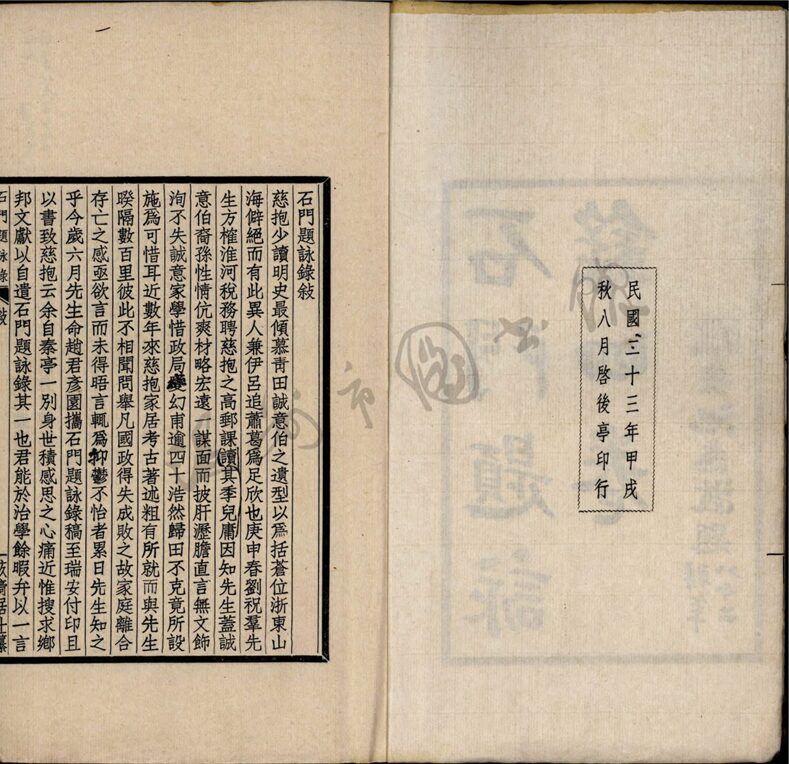 民國二十三年甲戌
秋八月啓後亭印行
石門題詠錄敍
慈抱少讀明史最傾慕青田誠意伯之遺型以爲括蒼位浙東山
海僻絕而有此異人兼伊呂追蕭葛爲足欣也庚申春劉祝羣先
生方榷淮河稅務聘慈抱之高郵課讀其季兒庸因知先生蓋誠
意伯裔孫性情伉爽材略宏遠一謀面而披肝瀝膽直言無文飾
洵不失誠意家學惜政局變幻甫逾四十浩然歸田不克竟所設
施爲可惜耳近數年來慈抱家居考古著述粗有所就而與先生
睽隔數百里彼此不相聞問舉凡國政得失成敗之故家庭離合
存亡之感亟欲言而未得晤言輒爲抑鬱不怡者累日先生知之
乎今歲六月先生命趙君彥園攜石門題詠錄稿至瑞安付印且
以書致慈抱云余自秦亭一別身世積感思之心痛近惟搜求鄉
邦文獻以自遣石門題詠錄其一也君能於治學餘暇弁以一言
石門題詠錄 敍
圖
市
石門題詠